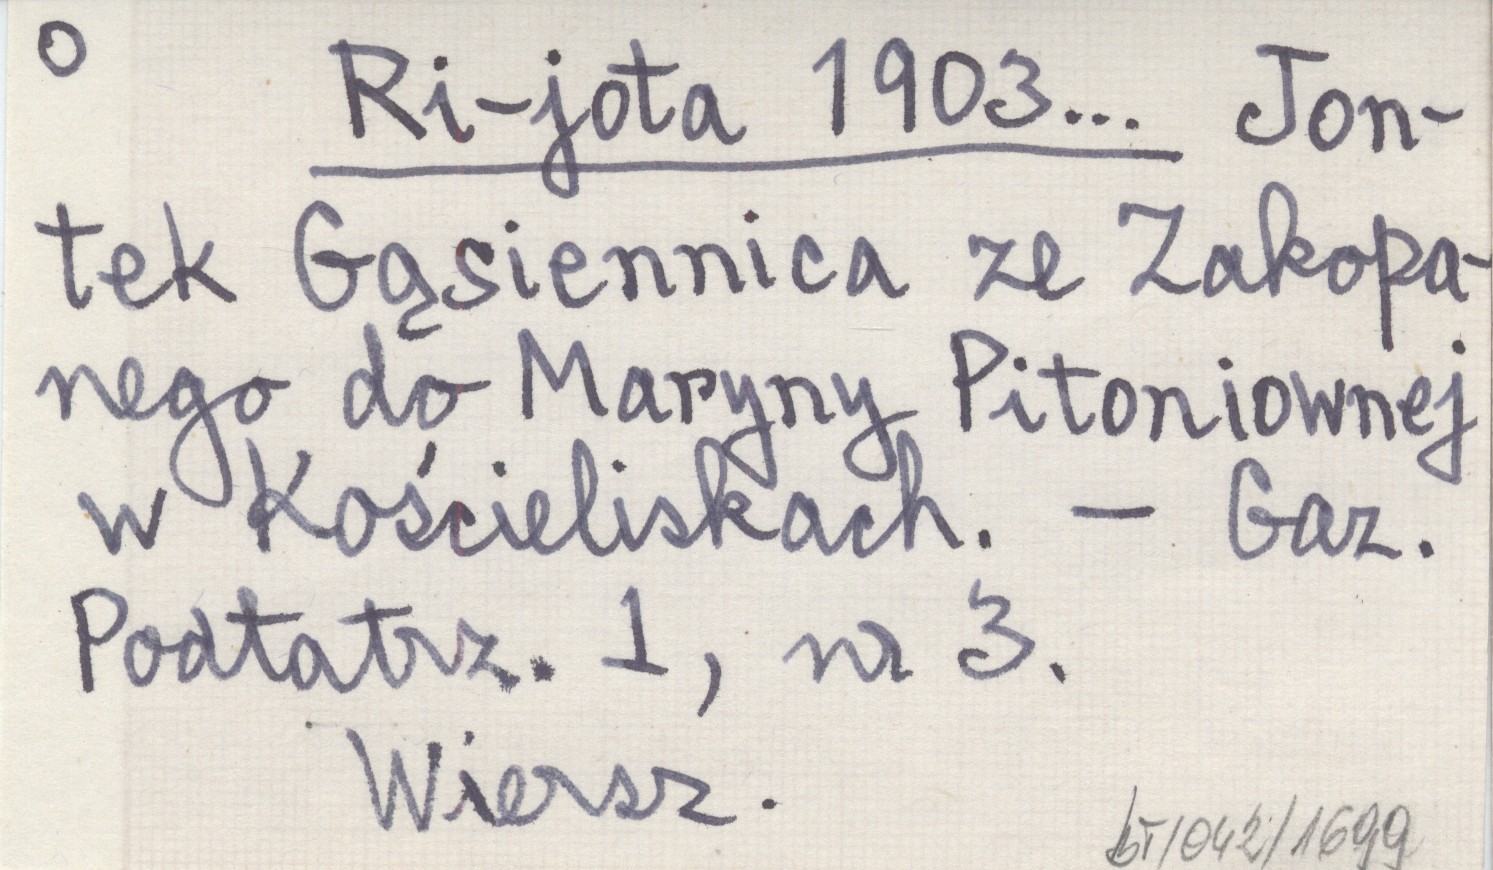 o Ri-jota 1903... Jon-
tek Gąsiennica ze Zakopa-
nego do Maryny Pitoniownej
w Kościeliskach. – Gaz.
Podtatrz. 1, nr 3.
Wiersz.
bT/042/1699